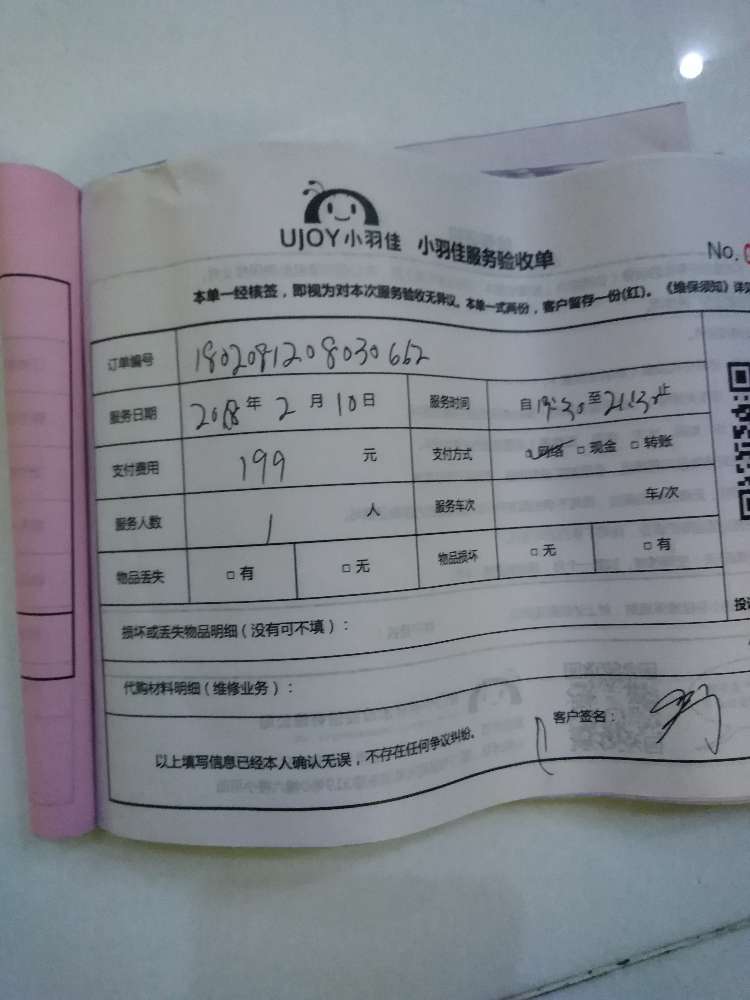 UJOY小羽佳 小羽佳服务验收单
No.
本单一经核签，即视为对本次服务验收无异议。本单一式两份，客户留存一份(红)。《维保须知》详
订单编号 1802081208030662
服务日期 2018年2月10日 服务时间 自 至 止
支付费用 199 元 支付方式 □网络 □现金 □转账
服务人数 1 人 服务车次 车/次
物品丢失 □有 □无 物品损坏 □无 □有
投
损坏或丢失物品明细(没有可不填)：
代购材料明细(维修业务)：
客户签名：
以上填写信息已经本人确认无误，不存在任何争议纠纷。